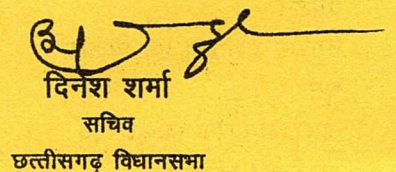 दिनेश शर्मा
सचिव
छत्तीसगढ़ विधानसभा